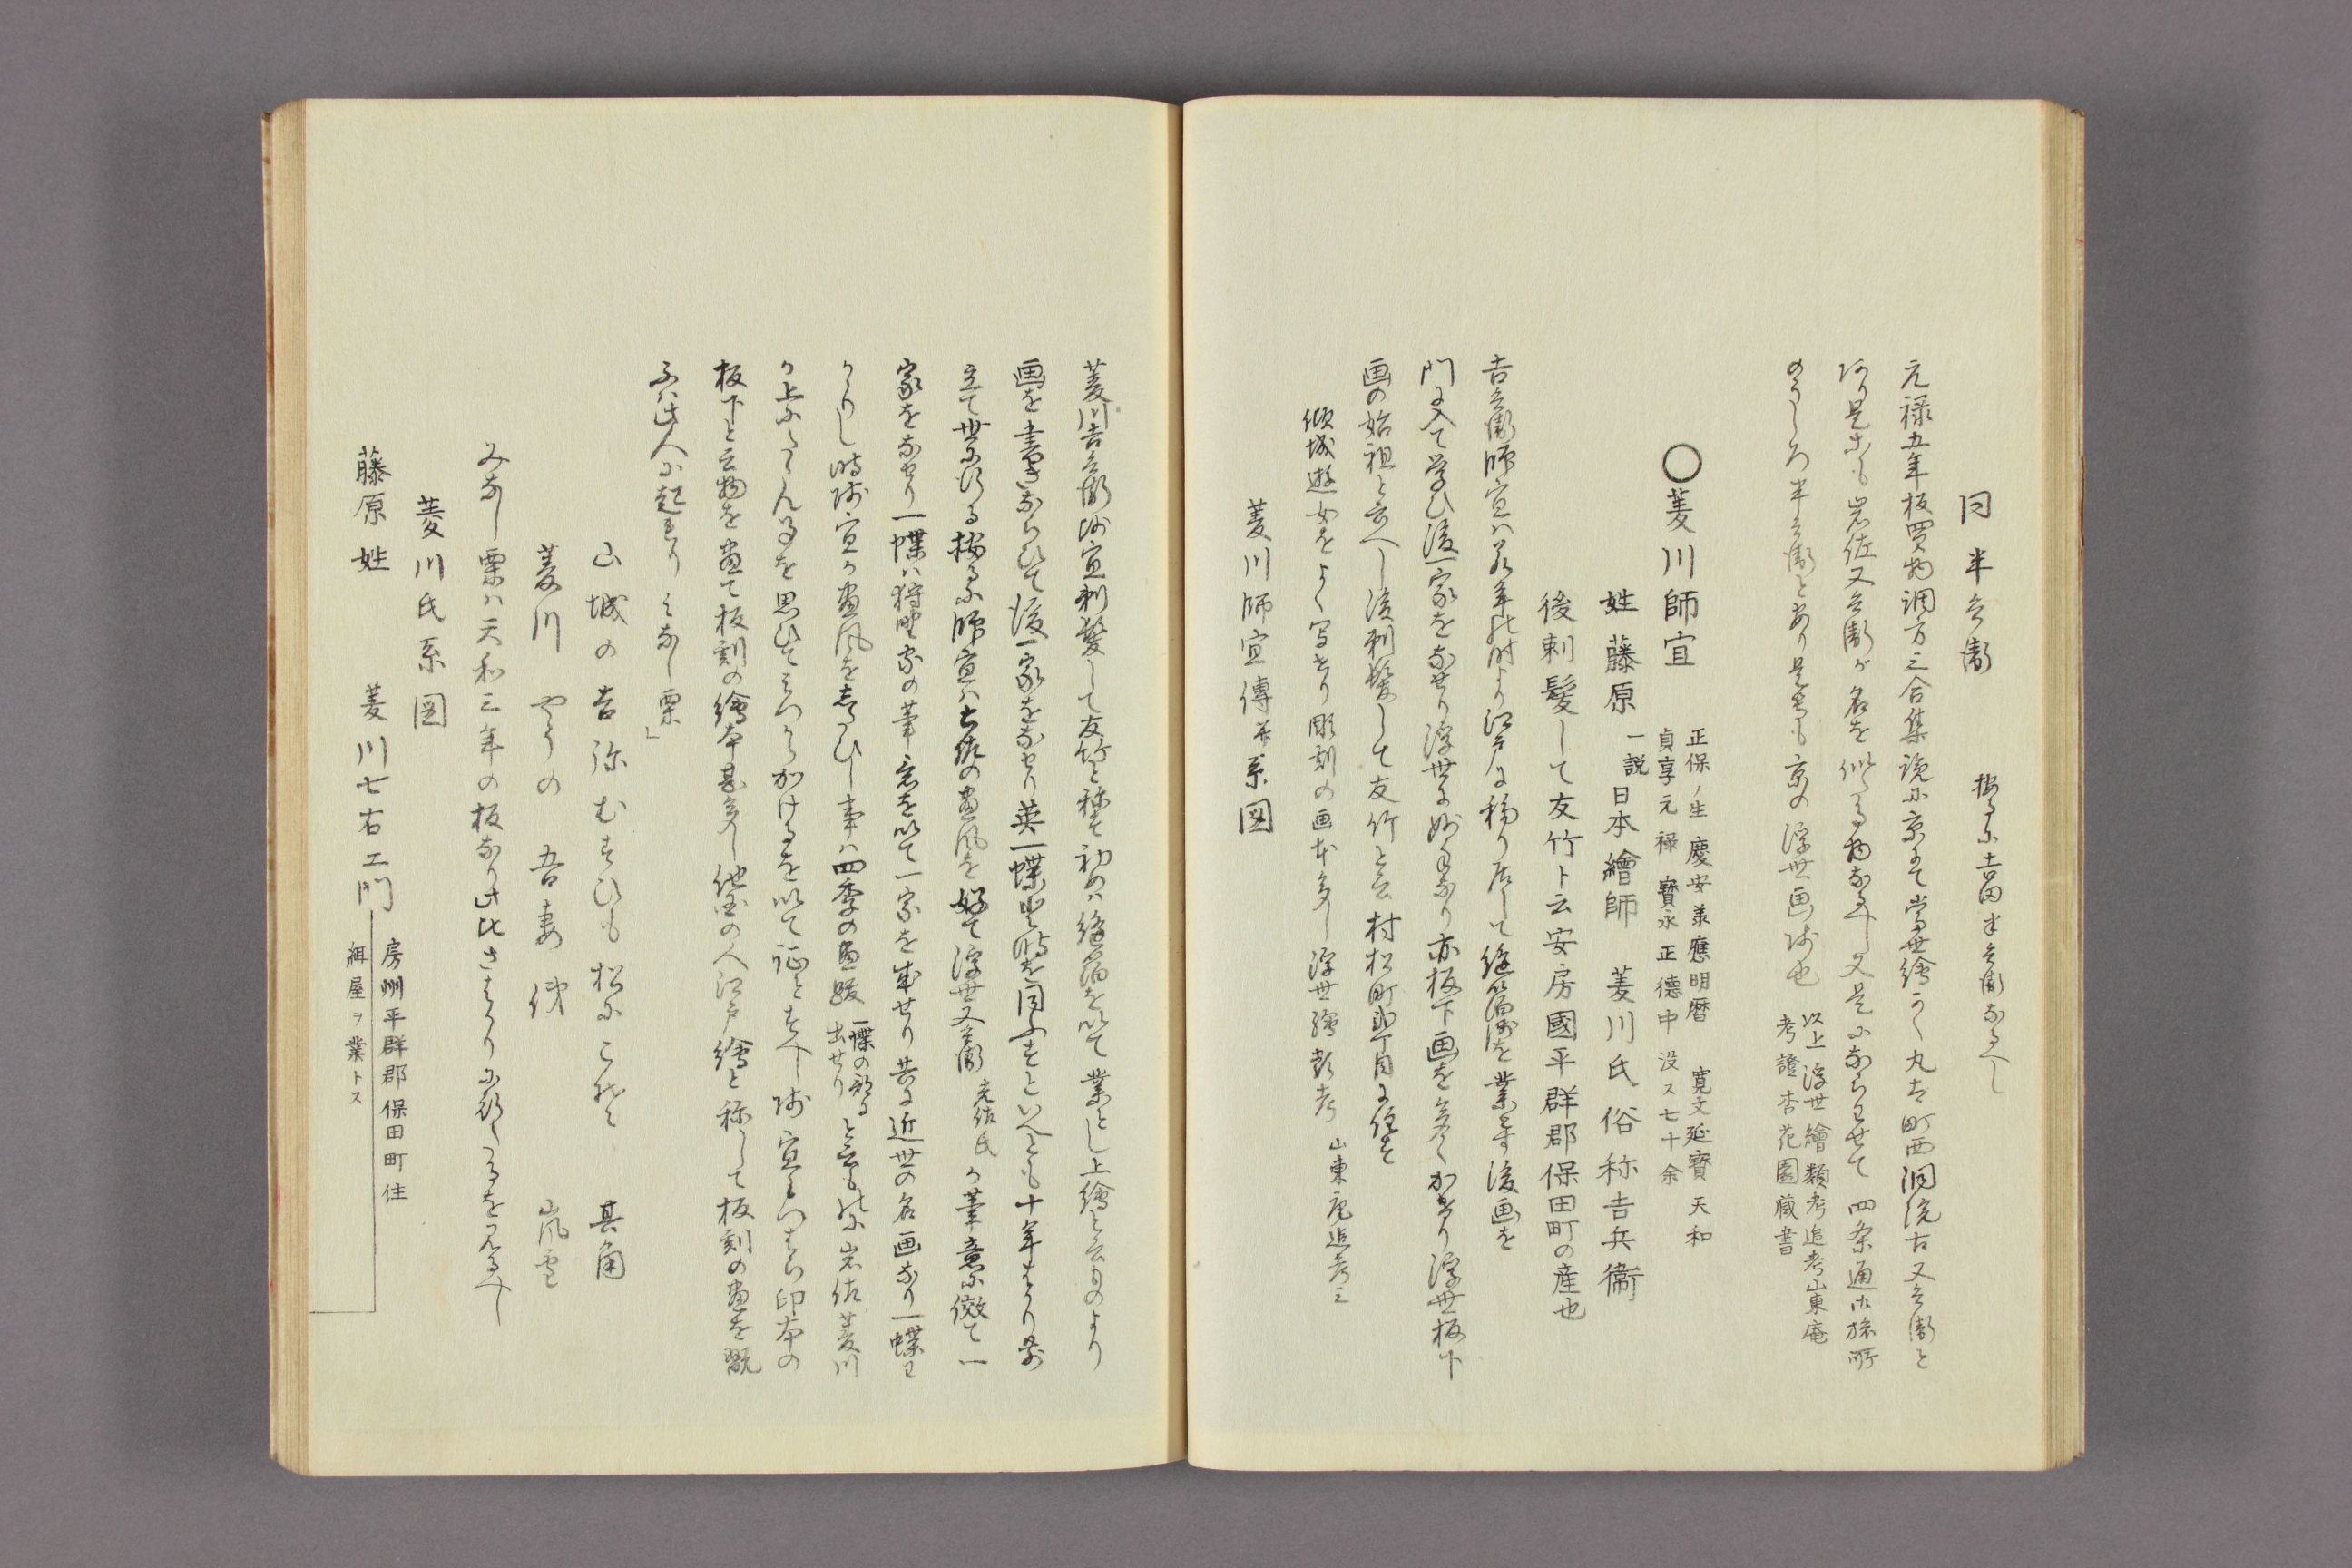 同半兵衛　按るに吉田半兵衛なるへし
元禄五年板買物調方三合集覧に京にて当世絵かく丸太町西洞院古又兵衛と
あり是等も岩佐又兵衛が名を似たる物なるへし又是にならはせて四条通御旅所
のうしろ半兵衛とあり是等も京の浮世画師也
以上浮世繪類考追考山東庵
考證杏花園蔵書
○菱川師宣
正保ノ生慶安羕應明暦　寛文延寶天和
貞享元禄寶永正徳中没ス七十余
姓藤原　一説日本繪師　菱川氏俗称吉兵衞
後剃髪して友竹ト云安房國平群郡保田町の産也
吉兵衛師宣ハ若年の時より江戸に移り居して縫箔を業とす後画を
門に入て学ひ後一家をなせり浮世に妙手なり亦板下画を多くかけり浮世板下
画の始祖と云へし後剃髪して友竹と云村松町弐丁目に住す
傾城遊女をよく写せり彫刻の画本多し浮世繪類考　山東庵追考ニ
菱川師宣傳并系図
菱川吉兵衛師宣剃髪して友竹と稱す初めハ縫箔を以て業とし上繪と云ものより
画を書きならひて後一家をなせり英一蝶と時を同ふすといへとも十年はかり前
立て世に行る按るに師宣ハ土佐の画風を好て浮世又兵衛　岩佐氏　か筆意に傚て一
家をなせり一蝶ハ狩野家の筆意を以て一家を成せり共に近世の名画なり一蝶わ
かかりし時師宣か画風をしたひし事ハ四季の画跋　一蝶の部に出せり　と云ものに岩佐菱川
か上にたゝん事を思ひてとみつからかけるを以て証とすへし師宣もつはら印本の
板下と云物を画て板刻の繪本甚多し他国の人江戸繪と称して板刻の画を翫
ふハ此人に起れりみなし栗」
山城の吉弥むすひも松にこそ　其角
菱川やうの吾妻俤　嵐雪
みなし栗ハ天和三年の板なり此比さかりに行れたるを見るへし
菱川氏系図
藤原姓　菱川七右エ門
房州平群郡保田町住
縫屋ヲ業トス